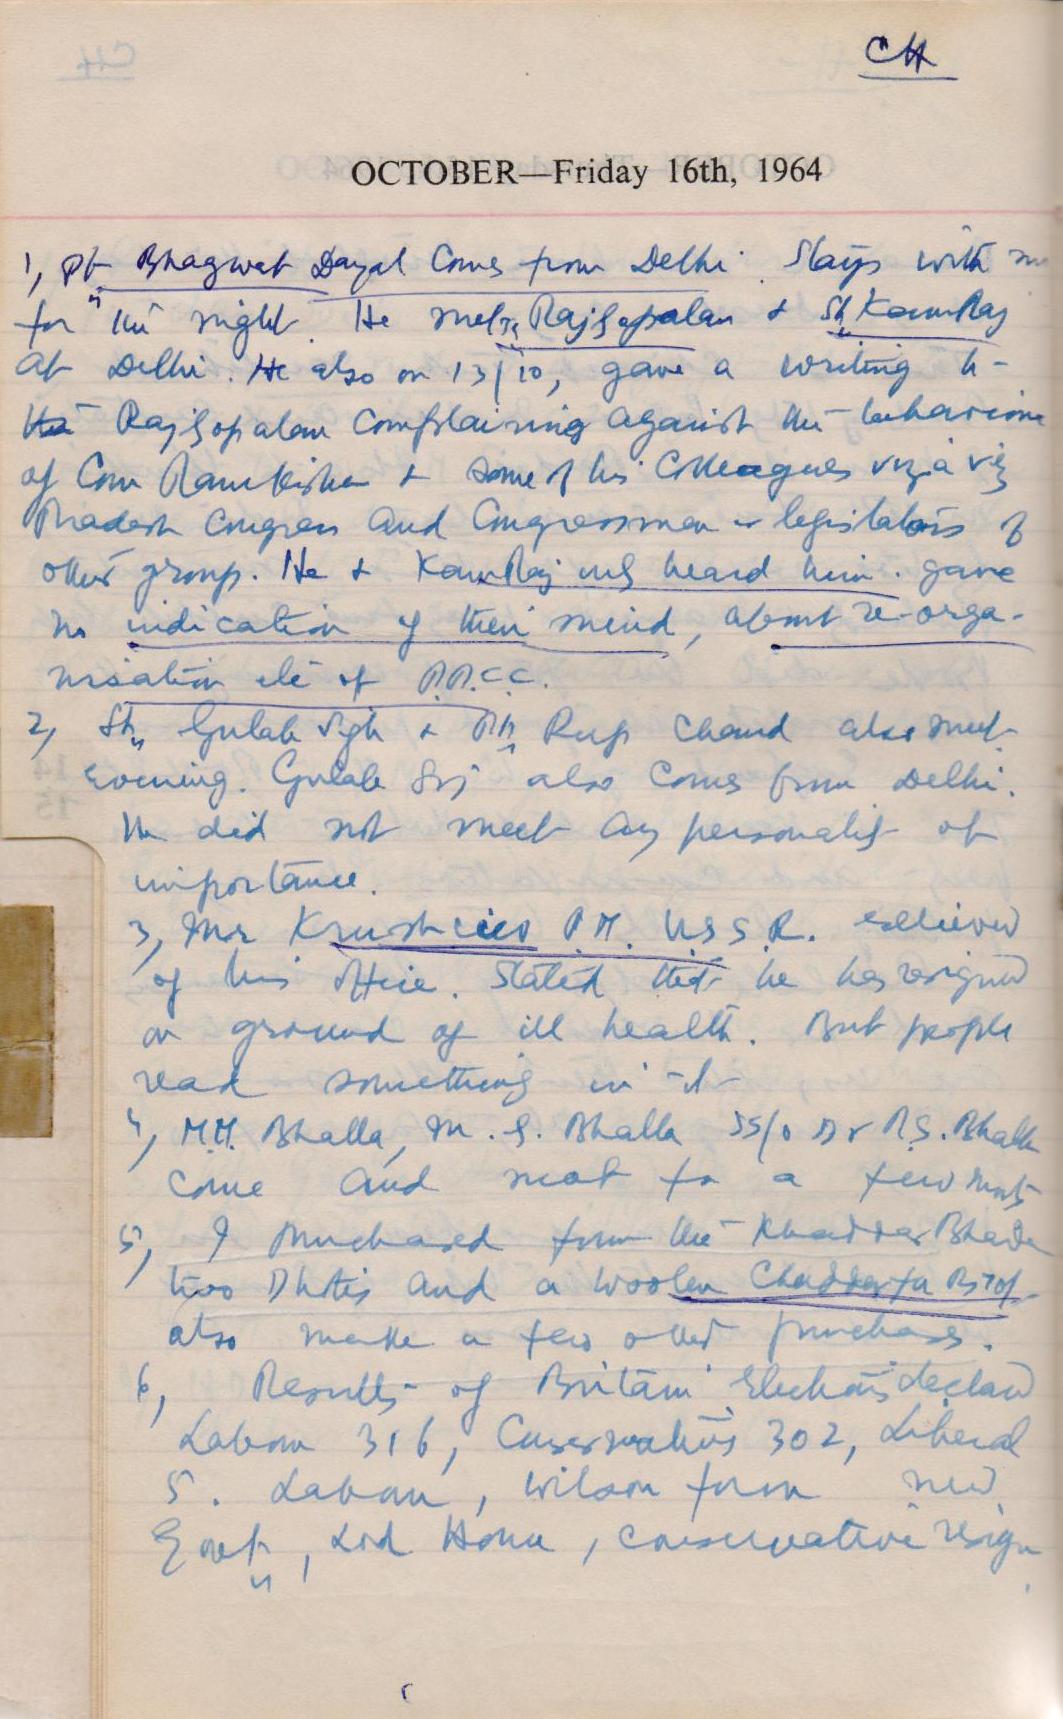 CH
OCTOBER—Friday 16th, 1964
1, Pt Bhagwat Dayal Comes from Delhi. Stays with me
for the night. He met Rajgopalan & Sh KamRaj
at Delhi. He also on 13/10, gave a writing to
Rajgopalan Complaining against the behaviour
of Com Ramkishan & some of his Colleagues viz a viz
Pradesh Congress and Congressmen legislators of
other group. He & KamRaj heard him. gave
no indication of their mind, about re-orga-
nisation etc of P.P.C.C.
2, Sh Gulab Sigh & Rup Chand also met
evening. Gulab also comes from Delhi.
He did not meet any personality of
importance.
3, Mr Krushciev P.M. U.S.S.R. relieved
of his office. Stated that he has resigned
on ground of ill health. But people
read something in it
4, M.M. Bhalla, M.S. Bhalla SS/o Dr R.S. Bhalla
come and meet for a few mnts
5, I Purchased from the Khaddar Bhader
two Dhotis and a woolen Chaddar for Rs 70/-
also make a few other purchases.
6, Results of Britain Elections declared
Labour 316, Conservatives 302, Liberal
5. Labour, Wilson form new
Govt, Lord Home, conservative resign